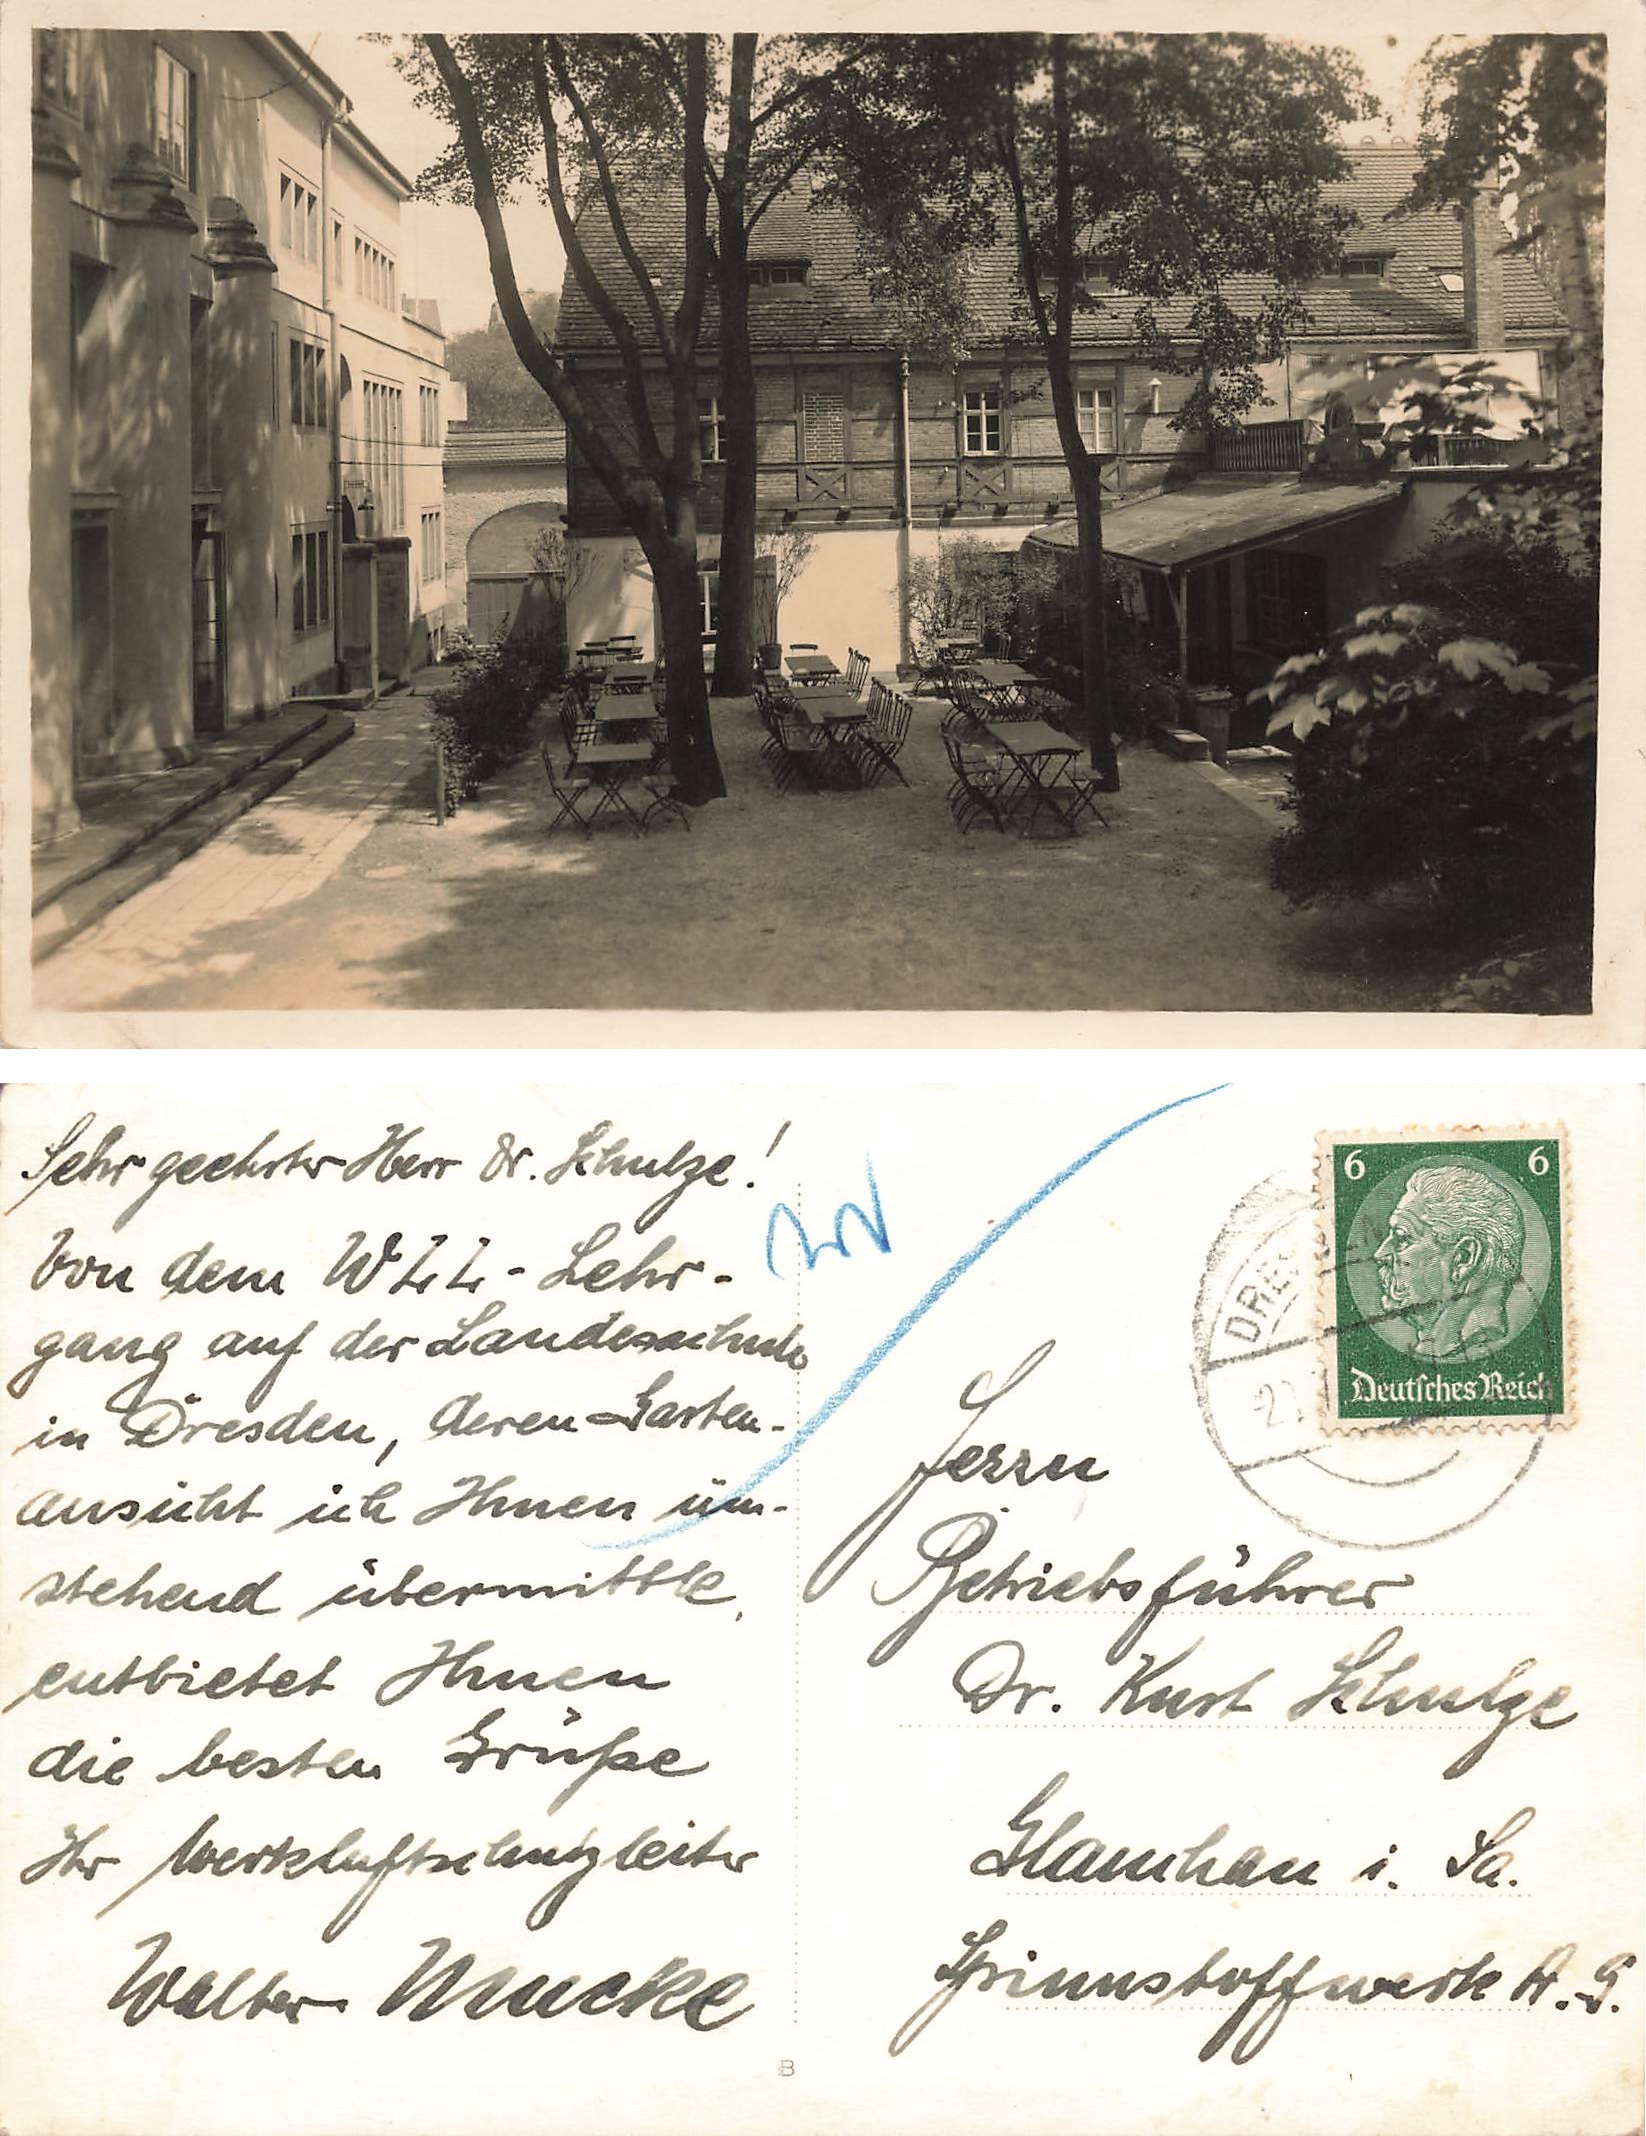 Sehr geehrter Herr Dr. Schulze!
Von dem WLL-Lehr-
gang auf der Landesschule
in Dresden, deren Garten-
ansicht ich Ihnen um-
stehend übermittle,
entbietet Ihnen
die besten Grüße
Ihr Werkluftschutzleiter
Walter Mucke
6 6
Deutsches Reich
DRESDEN
Herrn
Betriebsführer
Dr. Kurt Schulze
Glauchau i. Sa.
Spinnstoffwerk A.G.
B